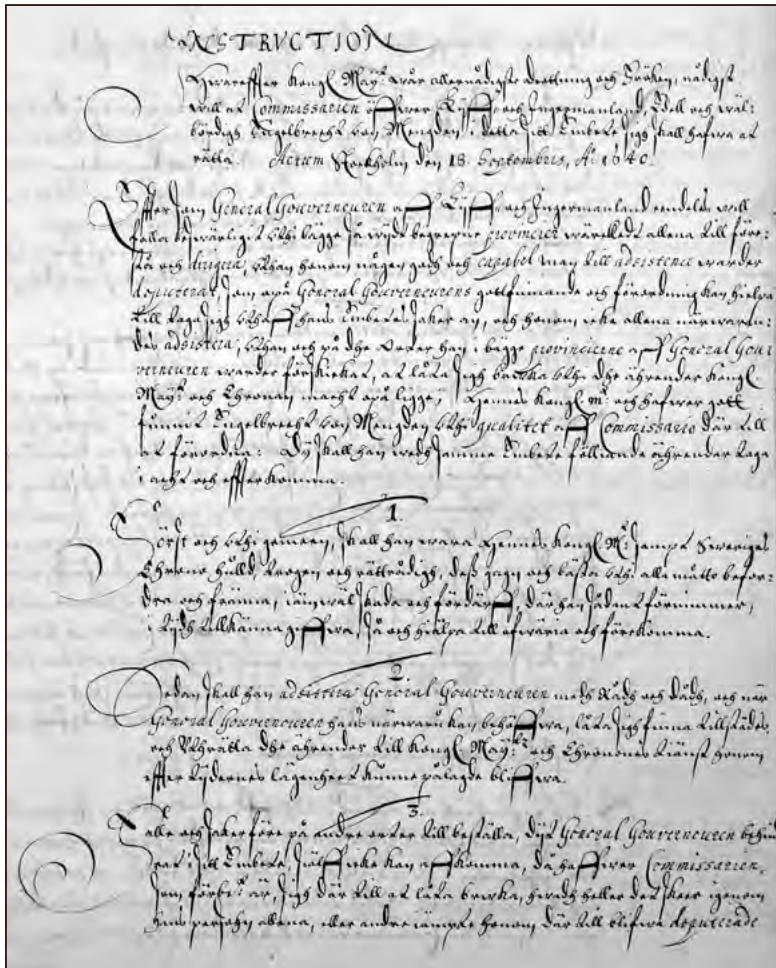 INSTRVCTION
Hwareffter Kongl. May:tt wår allernådigste Drottning och Fröken, nådigst
will at Commissarien öfwer Lijff- och Ingermanland, Edell och wäl-
bördigh Engelbrecht von Mengden i detta sitt Embete sigh skall hafwa at
rätta. Actum Stockholm den 18. Septembris, A:o 1640.
Effter som General Gouverneuren aff Lijff- och Ingermanland eendeles will
falla beswärligit uthi bägge så wijdt begrepne provincier wäreladt allena till före-
stå och dirigera, uthan honom någon godh och capabel man till adsistence warder
deputerat, som opå General Gouverneurens gottfinnande och förordning kan hielpa
till taga sigh uthaff hans Embetes saker an, och honom icke allena närwaran-
des adsistera, uthan och på dhe orter han i bägge provincierne aff General Gou-
verneuren warder förskickat, at låta sigh bruka uthi dhe ährender Kongl.
May:tt och Chronan macht opå ligge; Hennes Kongl. M:tt och hafwer gott
funnit Engelbrecht von Mengden uthi qualitet aff Commissario där till
at förordna: Dy skall han widh samma Embete fölliande ährender taga
i acht och effterkomma.
1.
Först och uthi gemeen, skall han wara Hennes Kongl. M:tt sampt Sweriges
Chrono huld, trogen och rättrådigh, dess gagn och bästa uthi alla måtto befor-
dra och främia, iämwäl skada och fördärff, där han sådant förnimmer,
i tijdh tillkänna giffwa, så och hielpa till afwäria och förekomma.
2.
Sedan skall han adsistera General Gouverneuren medh Rådh och dådh, och när
General Gouverneuren hans närwaru kan behöffwa, låta sigh finna tillstädes
och uthrätta dhe ährender till Kongl. May:tt och Chronones tiänst honom
effter tijdernes lägenheet kunne pålagde bliffwa.
3.
Falle och saker före på andre orter till beställa, dijt General Gouverneuren behind-
rat i sitt Embete, siälff icke kan affkomma, då haffwer Commissarien,
som förbe:t är, sigh där till at låta bruka, hwadh heller det skeer igenom
hans persohn allena, eller andre iämpte honom där till blifwa deputerade